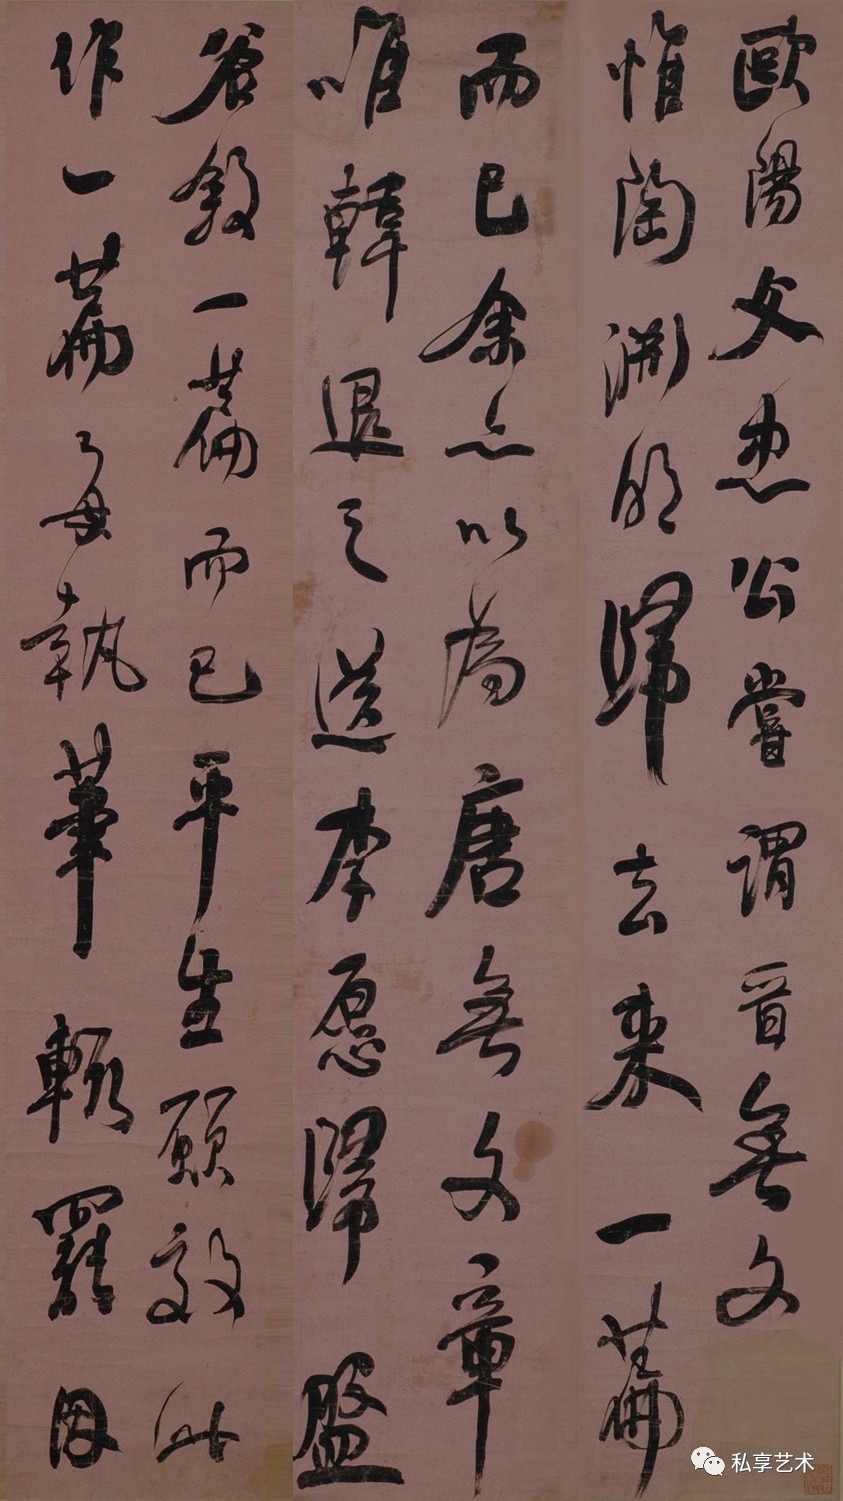 歐陽文忠公嘗謂晉無文
惟陶淵明歸去來一篇
而已余亦以為唐無文章
唯韓退之送李愿歸盤
谷敘一篇而已平生願效此
作一篇每執筆輒罷因
私享艺术